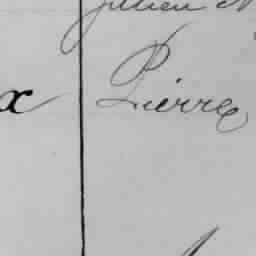 Julien
x Pierre